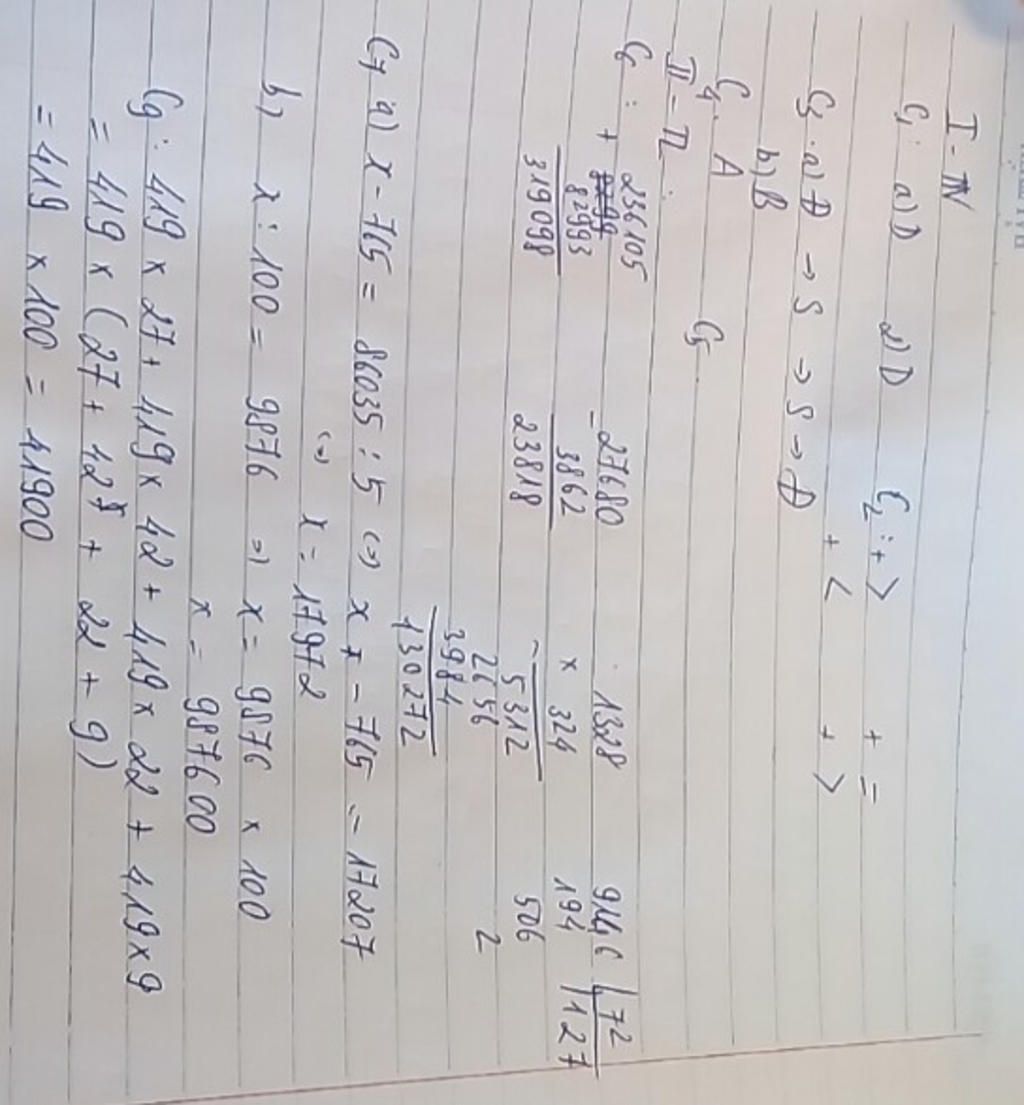 I - TN
C1: a) D 2) D C2: + > + =
+ < + >
C3. a) Đ → S → S → Đ
b) B
C4. A C5
II - TL:
C6: + 236105 - 27680 1328 9146 72
82993 3862 x 324 194 127
319098 23818 5312 506
2656 2
3984
430272
C7 a) x - 765 = 86035 : 5 (=) x - 765 = 17207
(=) x = 17972
b) x : 100 = 9876 =) x = 9876 x 100
x = 987600
C9: 419 x 27 + 419 x 42 + 419 x 22 + 419 x 9
= 419 x (27 + 42 + 22 + 9)
= 419 x 100 = 41900